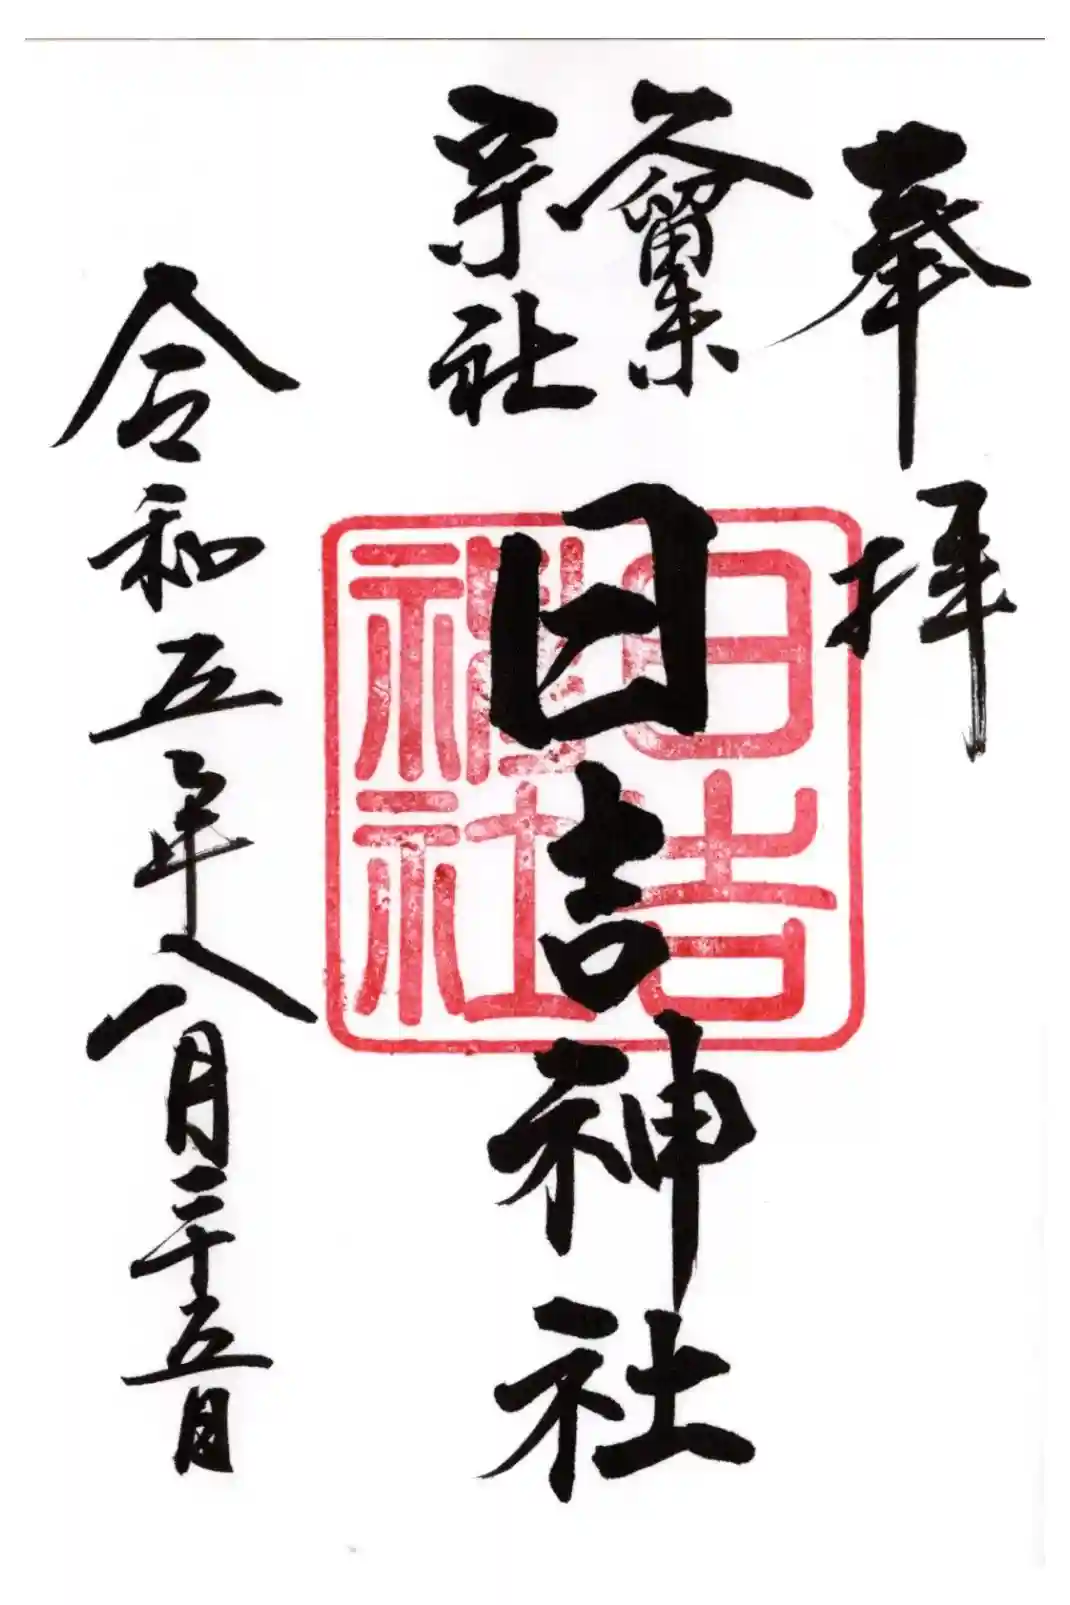 奉拝
久留米
宗社
日吉神社
日吉
神社
令和五年八月二十五日